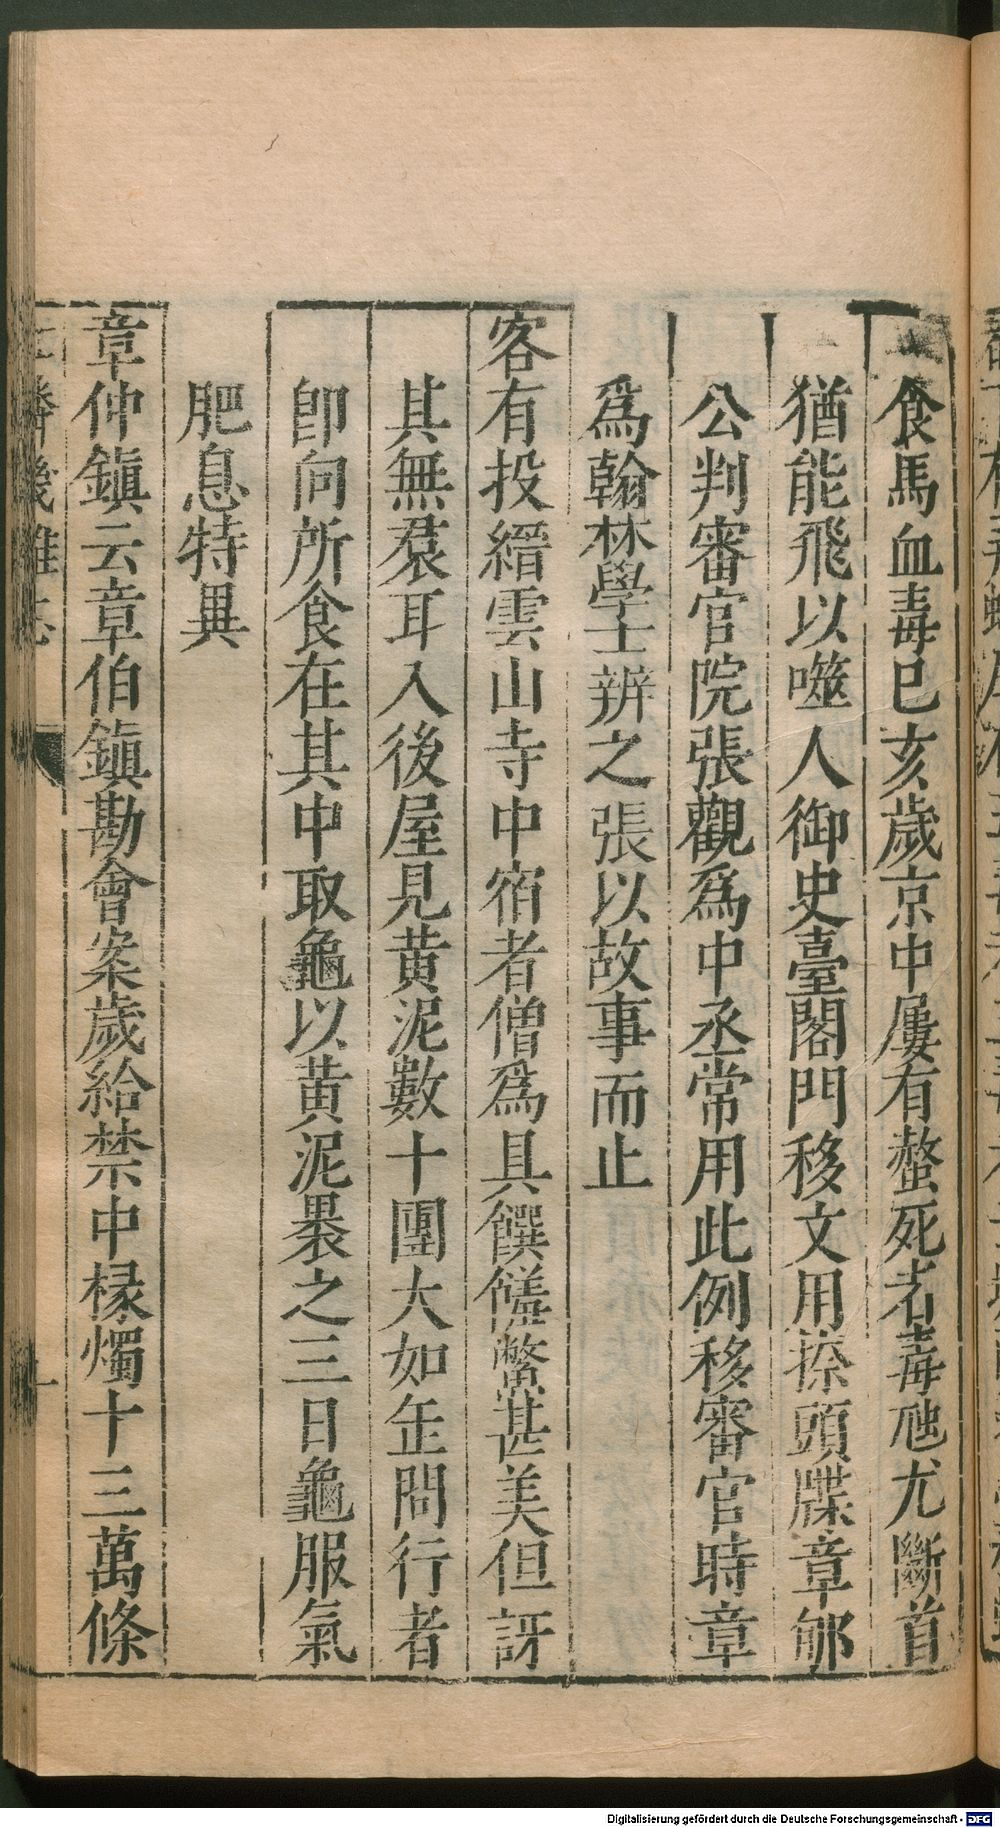 食馬血毒巳亥歲京中屢有螫死者毒虺尤斷首
猶能飛以噬人御史臺閤門移文用搽頭牒章郇
公判審官院張觀爲中丞常用此例移審官時章
爲翰林學士辨之張以故事而止
客有投縉雲山寺中宿者僧爲具饌饈鱉甚美但訝
其無裠耳入後屋見黄泥數十團大如缶問行者
卽向所食在其中取龜以黄泥褁之三日龜服氣
肥息特異
章仲鎭云章伯鎭勘會案歲給禁中椽燭十三萬條
鄰幾雜志
Digitalisierung gefördert durch die Deutsche Forschungsgemeinschaft - DFG